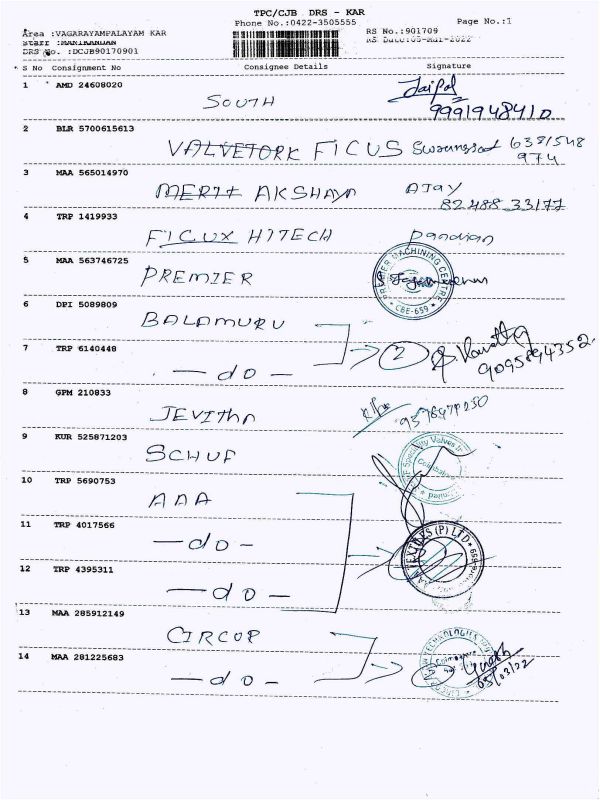 TPC/CJB DRS - KAR
Phone No.:0422-3505555
Page No.:1
Area :VAGARAYAMPALAYAM KAR
RS No.:901709
Staff :MANIKANDAN
RS Date:05-Mar-2022
DRS No. :DCJB90170901
S No Consignment No Consignee Details Signature
1 AMD 24608020
SOUTH
Jaipal
9991948410
2 BLR 5700615613
VALVETORK FICUS
6381548
974
3 MAA 565014970
MERIT AKSHAYA AJAY
82488 33177
4 TRP 1419933
FICUX HITECH Pandian
5 MAA 563746725
PREMIER
PREMIER MACHINING CENTRE
CBE-659
6 DPI 5089809
BALAMURU
7 TRP 6140448
— do —
2
9095894352
8 GPM 210833
JEVITHA
9 KUR 525871203
SCHUF
Speciality Valves
Coimbatore
10 TRP 5690753
AAA
11 TRP 4017566
— do —
TEXTILES (P) LTD
12 TRP 4395311
— do —
13 MAA 285912149
CIRCOR
14 MAA 281225683
— do —
05/03/22